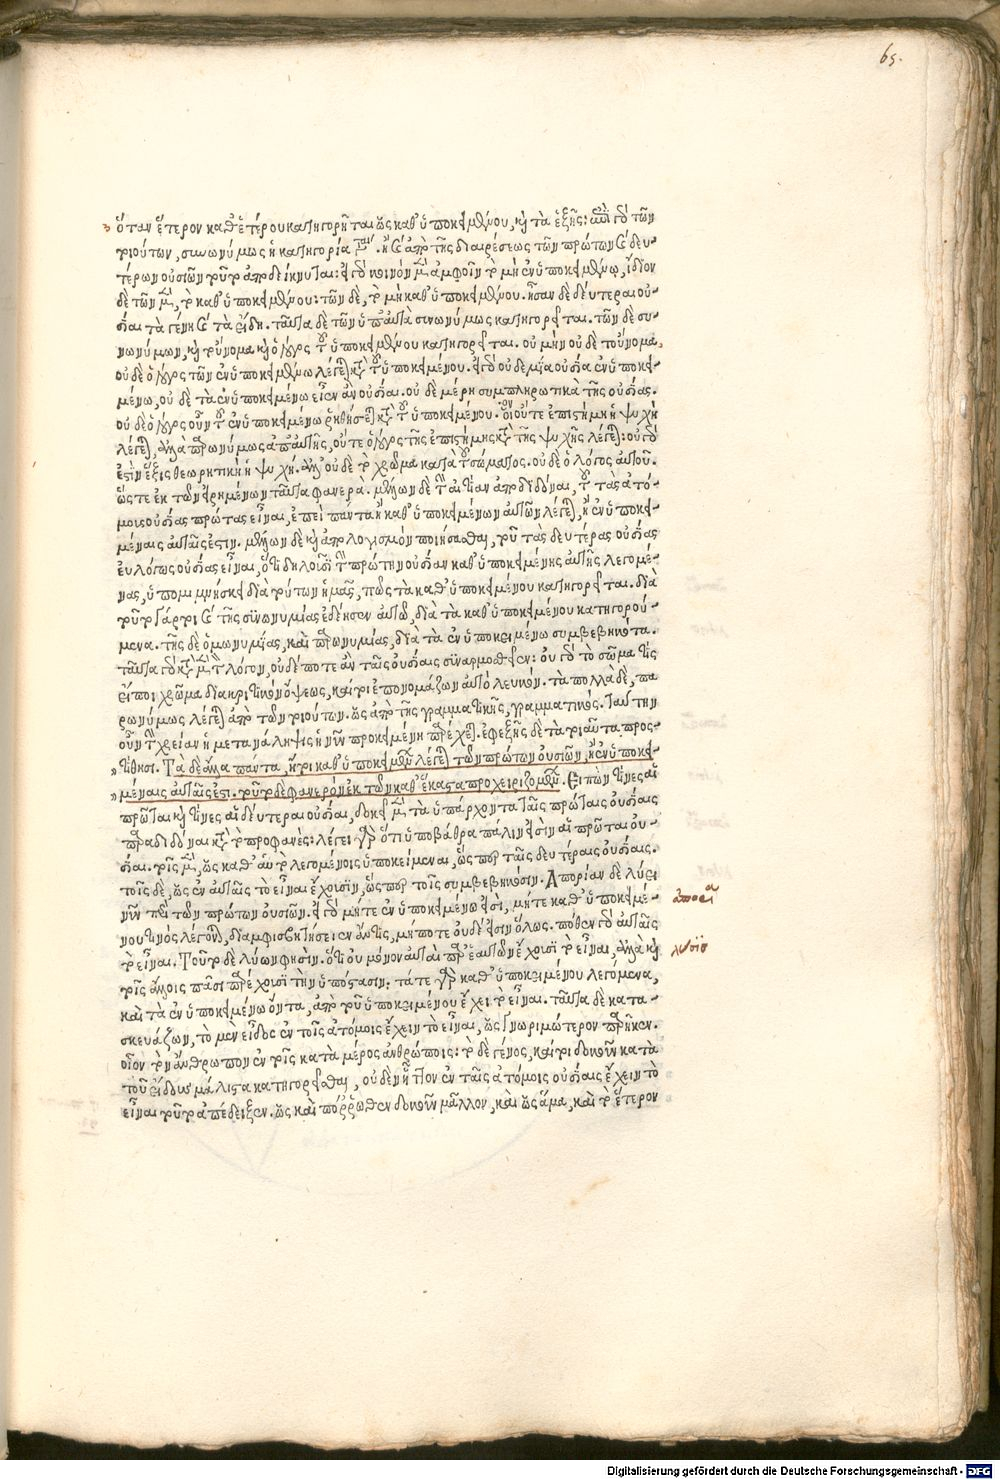 65.
ὅταν ἕτερον καθ' ἑτέρου κατηγορῆται ὡς καθ' ὑποκειμένου, καὶ τὰ ἑξῆς: ἐπὶ γὰρ τῶν
τοιούτων, συνωνύμως ἡ κατηγορία ἐστίν. ἢ καὶ ἀπὸ τῆς διαιρέσεως τῶν πρώτων καὶ δευ-
τέρων οὐσιῶν τοῦτο ἀποδείκνυται: εἰ γὰρ κοινὸν μὲν ἀμφοῖν τὸ μὴ ἐν ὑποκειμένῳ, ἴδιον
δὲ τῶν μὲν, τὸ καθ' ὑποκειμένου: τῶν δὲ, τὸ μὴ καθ' ὑποκειμένου. ἦσαν δὲ δεύτεραι οὐ-
σίαι τὰ γένη καὶ τὰ εἴδη. ταῦτα δὲ τῶν ὑπ' αὐτὰ συνωνύμως κατηγορεῖται. τῶν δὲ συ-
νωνύμων, καὶ τοὔνομα καὶ ὁ λόγος τοῦ ὑποκειμένου κατηγορεῖται. οὐ μὴν οὐδὲ τοὔνομα,
οὐδὲ ὁ λόγος τῶν ἐν ὑποκειμένῳ λέγεται κατὰ τοῦ ὑποκειμένου. εἰ γὰρ οὐδεμία οὐσία ἐν ὑποκει-
μένῳ, οὐδὲ τὰ ἐν ὑποκειμένῳ εἶεν ἂν οὐσίαι. οὐδὲ μέρη συμπληρωτικὰ τῆς οὐσίας.
οὐδὲ ὁ λόγος οὖν τοῦ ἐν ὑποκειμένῳ ῥηθήσεται κατὰ τοῦ ὑποκειμένου. οἷον οὔτε ἐπιστήμη ἡ ψυχὴ
λέγεται, ἀλλὰ παρωνύμως ἀπ' αὐτῆς, οὔτε ὁ λόγος τῆς ἐπιστήμης κατὰ τῆς ψυχῆς λέγεται: οὐ γὰρ
ἐστὶν ἕξις θεωρητικὴ ἡ ψυχή. ἀλλ' οὐδὲ τὸ χρῶμα κατὰ τοῦ σώματος. οὐδὲ ὁ λόγος αὐτοῦ.
ὥστε ἐκ τῶν εἰρημένων ταῦτα φανερά. μέλλων δὲ τὴν αἰτίαν ἀποδιδόναι, τοῦ τὰς ἀτό-
μους οὐσίας πρώτας εἶναι, ἐπεὶ πάντα ἢ καθ' ὑποκειμένων αὐτῶν λέγεται, ἢ ἐν ὑποκει-
μέναις αὐταῖς ἐστιν. μέλλων δὲ καὶ ἀπολογισμὸν ποιήσασθαι, τοῦ τὰς δευτέρας οὐσίας
εὐλόγως οὐσίας εἶναι, ὅτι δηλοῦσι τὴν πρώτην οὐσίαν καθ' ὑποκειμένης αὐτῆς λεγομέ-
νας, ὑπομιμνήσκει διὰ τούτων ἡμᾶς, πῶς τὰ καθ' ὑποκειμένου κατηγορεῖται. διὰ
τοῦτο γάρ τοι καὶ τῆς συνωνυμίας ἐδέησεν αὐτῷ, διὰ τὰ καθ' ὑποκειμένου κατηγορού-
μενα. τῆς δὲ ὁμωνυμίας, καὶ παρωνυμίας, διὰ τὰ ἐν ὑποκειμένῳ συμβεβηκότα.
ταῦτα γὰρ κατὰ μὲν τὸν λόγον, οὐδέποτε ἂν ταῖς οὐσίαις συναρμοσθείεν: οὐ γὰρ τὸ σῶμά τις
εἴποι χρῶμα διακριτικὸν ὄψεως, καίτοι ἐπονομάζων αὐτὸ λευκόν. τὰ πολλὰ δὲ, πα
ρωνύμως λέγεται ἀπὸ τῶν τοιούτων. ὡς ἀπὸ τῆς γραμματικῆς, γραμματικός. ταύτην
οὖν τὴν χρείαν ἡ μετάληψις ἡ νῦν προκειμένη παρέχεται. ἐφεξῆς δὲ τὰ τοιαῦτα προσ-
τίθησι. Τὰ δὲ ἄλλα πάντα, ἤτοι καθ' ὑποκειμένων λέγεται τῶν πρώτων οὐσιῶν, ἢ ἐν ὑποκει-
μέναις αὐταῖς ἐστι. τοῦτο δὲ φανερὸν ἐκ τῶν καθ' ἕκαστα προχειριζομένων. Εἰπὼν τίνες αἱ
πρῶται καὶ τίνες αἱ δεύτεραι οὐσίαι, δοκεῖ μὲν τὰ ὑπάρχοντα ταῖς πρώταις οὐσίαις
παραδιδόναι κατὰ τὸ προφανές: λέγει γὰρ ὅτι ὑποβάθρα πάλιν εἰσὶν αἱ πρῶται οὐ-
σίαι. τοῖς μὲν, ὡς καθ' αὑτὸ λεγομένοις ὑποκείμεναι, ὥσπερ ταῖς δευτέραις οὐσίαις.
τοῖς δὲ, ὡς ἐν αὐταῖς τὸ εἶναι ἔχουσιν, ὥσπερ τοῖς συμβεβηκόσιν. Ἀπορίαν δὲ λύει
νῦν περὶ τῶν πρώτων οὐσιῶν. εἰ γὰρ μήτε ἐν ὑποκειμένῳ εἰσὶ, μήτε καθ' ὑποκειμέ-
νου τινὸς λέγονται, διαμφισβητήσειεν ἄν τις, μήποτε οὐδέ εἰσιν ὅλως. πόθεν γὰρ αὐταῖς
τὸ εἶναι. Τοῦτο δὲ λύων φησὶν. ὅτι οὐ μόνον αὐταὶ παρ' ἑαυτῶν ἔχουσι τὸ εἶναι, ἀλλὰ καὶ
τοῖς ἄλλοις πᾶσι παρέχουσι τὴν ὑπόστασιν: τά τε γὰρ καθ' ὑποκειμένου λεγόμενα,
καὶ τὰ ἐν ὑποκειμένῳ ὄντα, ἀπὸ τοῦ ὑποκειμένου ἔχει τὸ εἶναι. ταῦτα δὲ κατα-
σκευάζων, τὸ μὲν εἶδος ἐν τοῖς ἀτόμοις ἔχειν τὸ εἶναι, ὡς γνωριμώτερον παρῆκεν.
οἷον τὸν ἄνθρωπον ἐν τοῖς κατὰ μέρος ἀνθρώποις: τὸ δὲ γένος, καίτοι δοκοῦν κατὰ
τοῦ εἴδους μάλιστα κατηγορεῖσθαι, οὐδὲν ἧττον ἐν ταῖς ἀτόμοις οὐσίαις ἔχειν τὸ
εἶναι τοῦτο ἀπέδειξεν. ὡς καὶ πόρρωθεν δοκοῦν μᾶλλον, καὶ ὡς ἅμα, καὶ τὸ ἕτερον
ἀπορία
λύσις
Digitalisierung gefördert durch die Deutsche Forschungsgemeinschaft - DFG